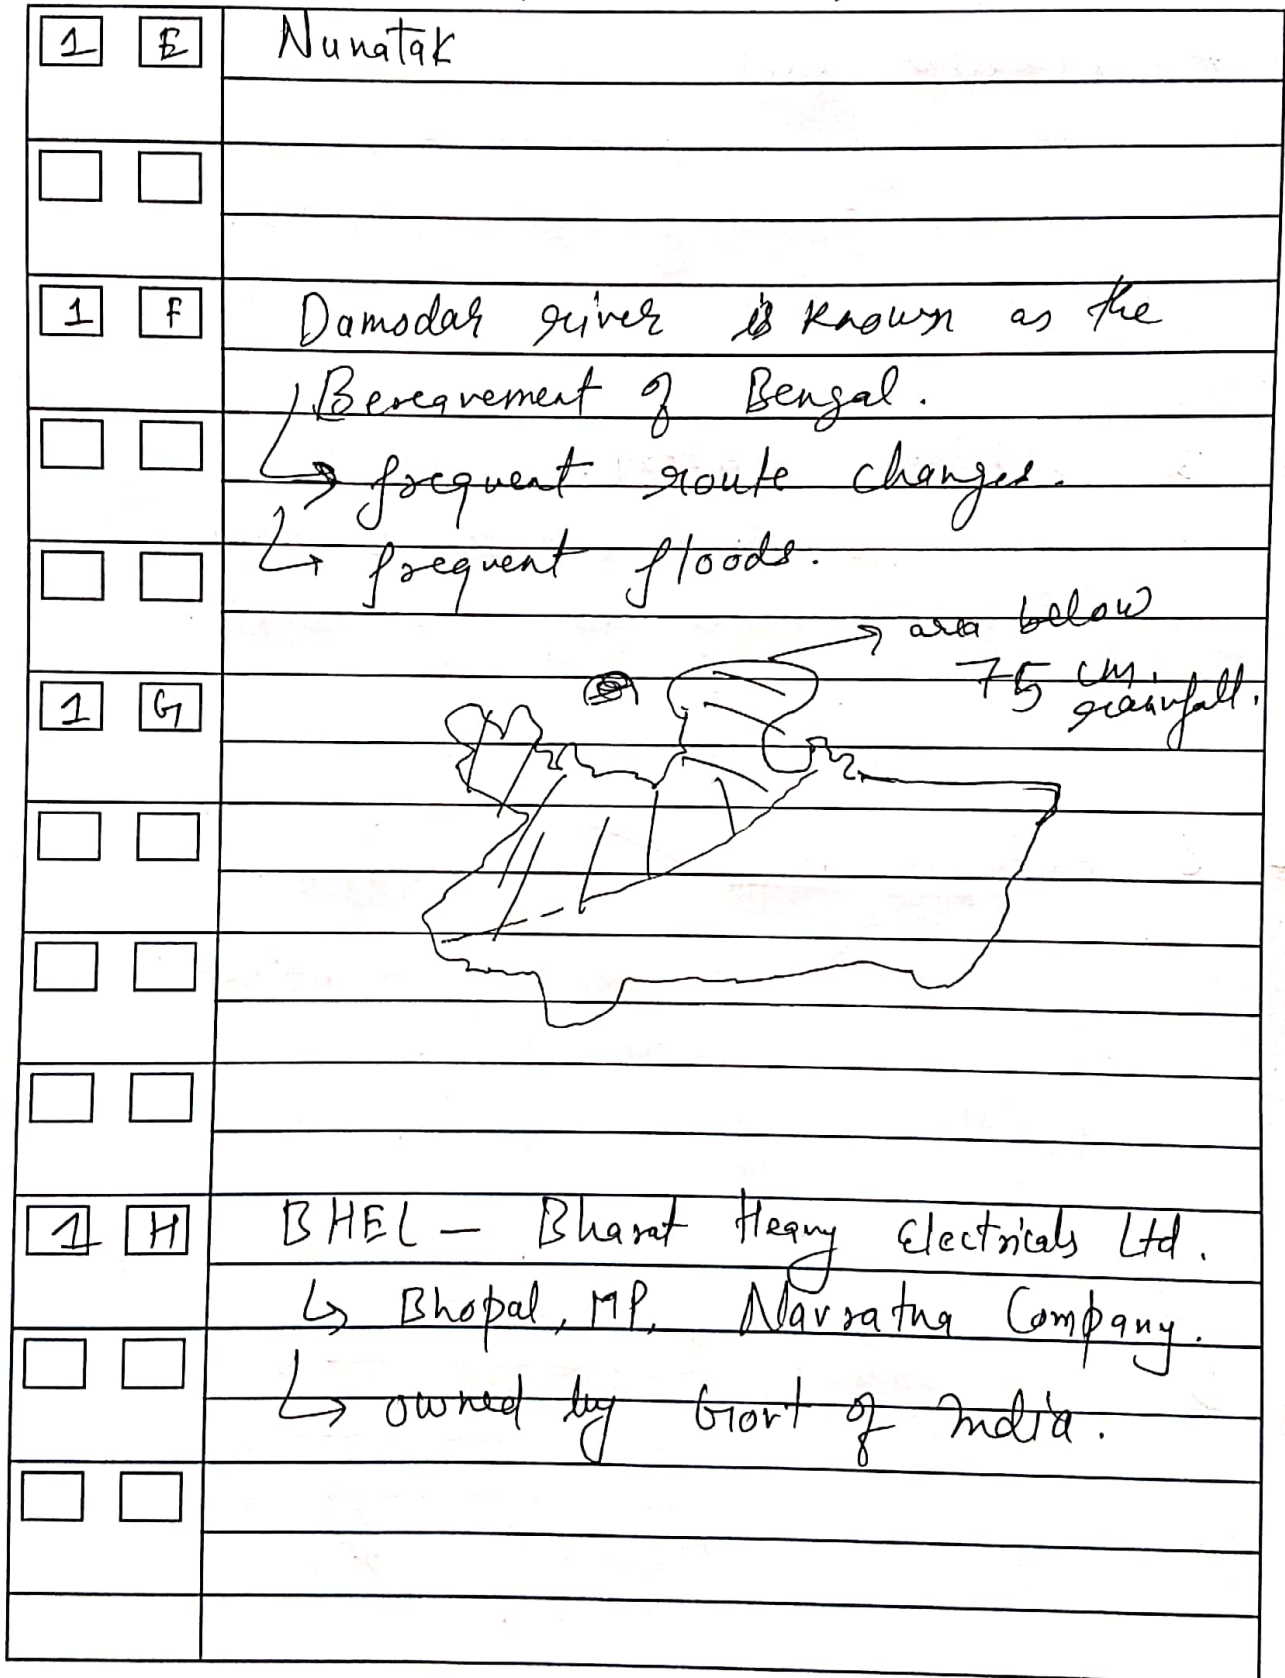 1 E Nunatak
1 F Damodar river is known as the
Bereavement of Bengal.
↳ frequent route changes.
↳ frequent floods.
→ area below
75 cm.
rainfall.
1 G
1 H BHEL - Bharat Heavy Electricals Ltd.
↳ Bhopal, MP. Navratna Company.
↳ owned by Govt of India.